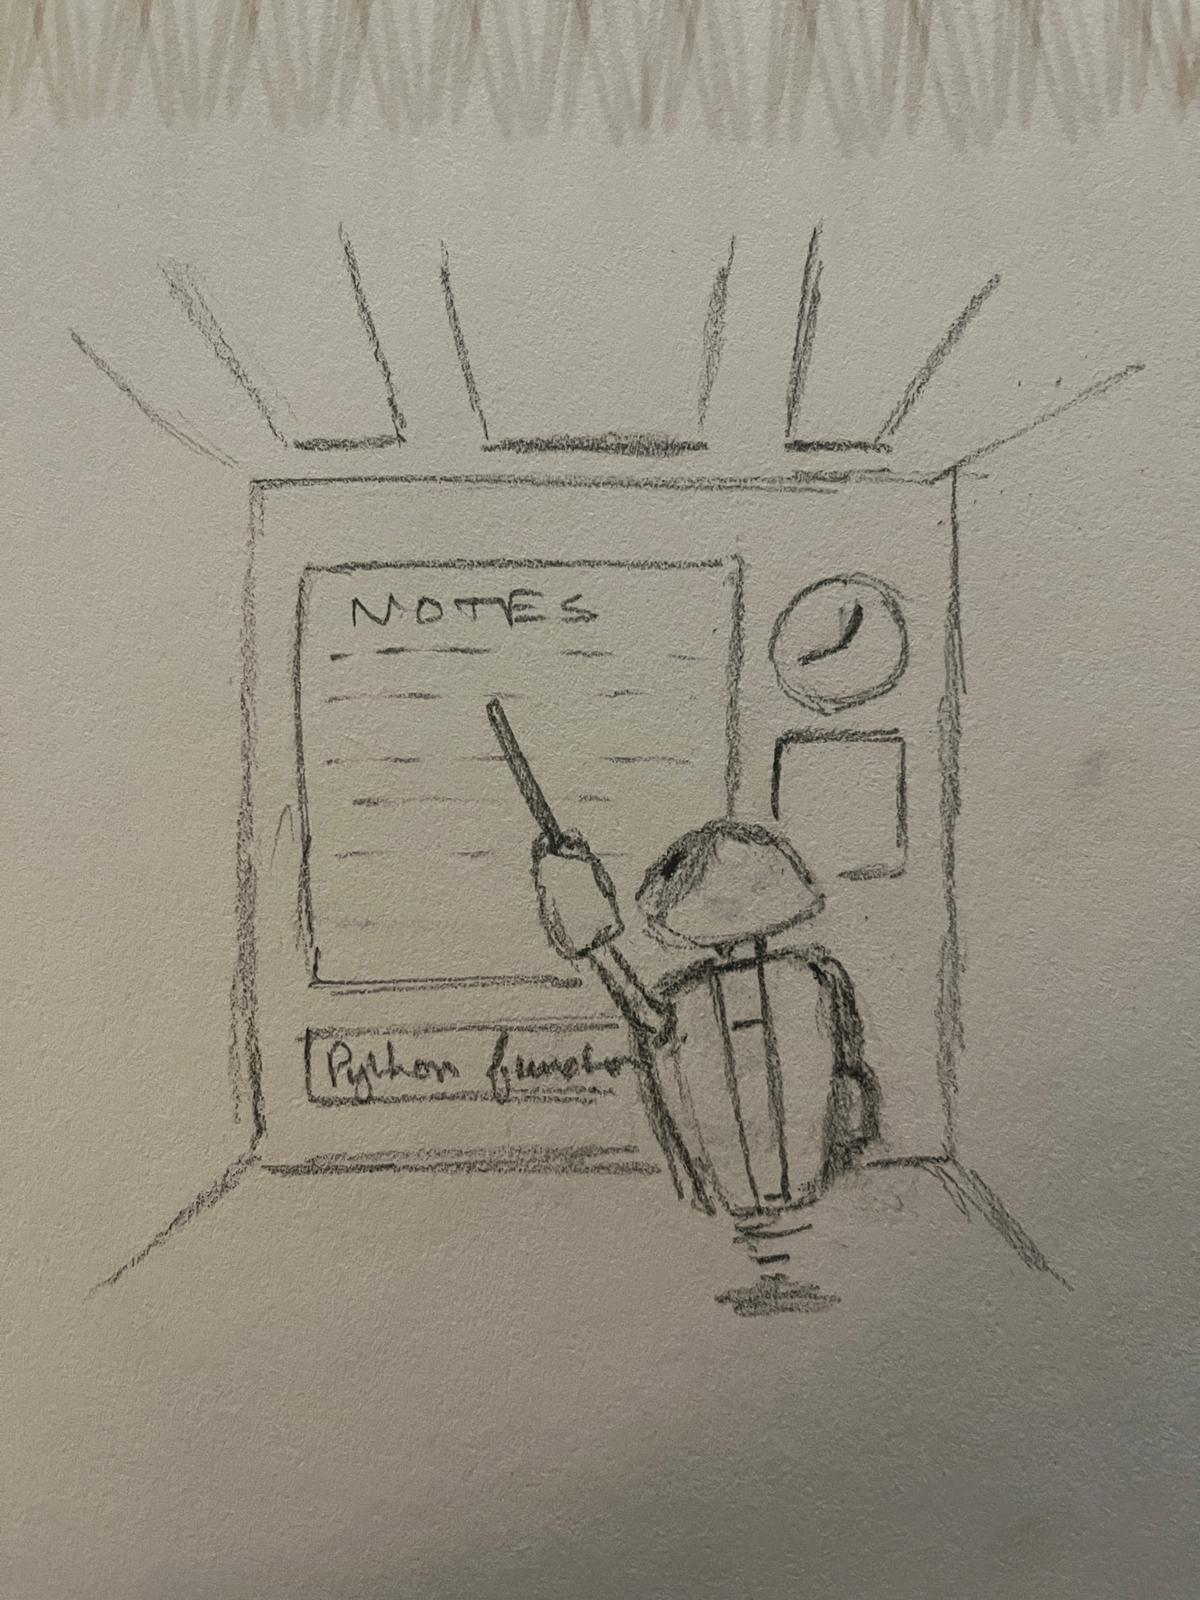 NOTES
Python functio